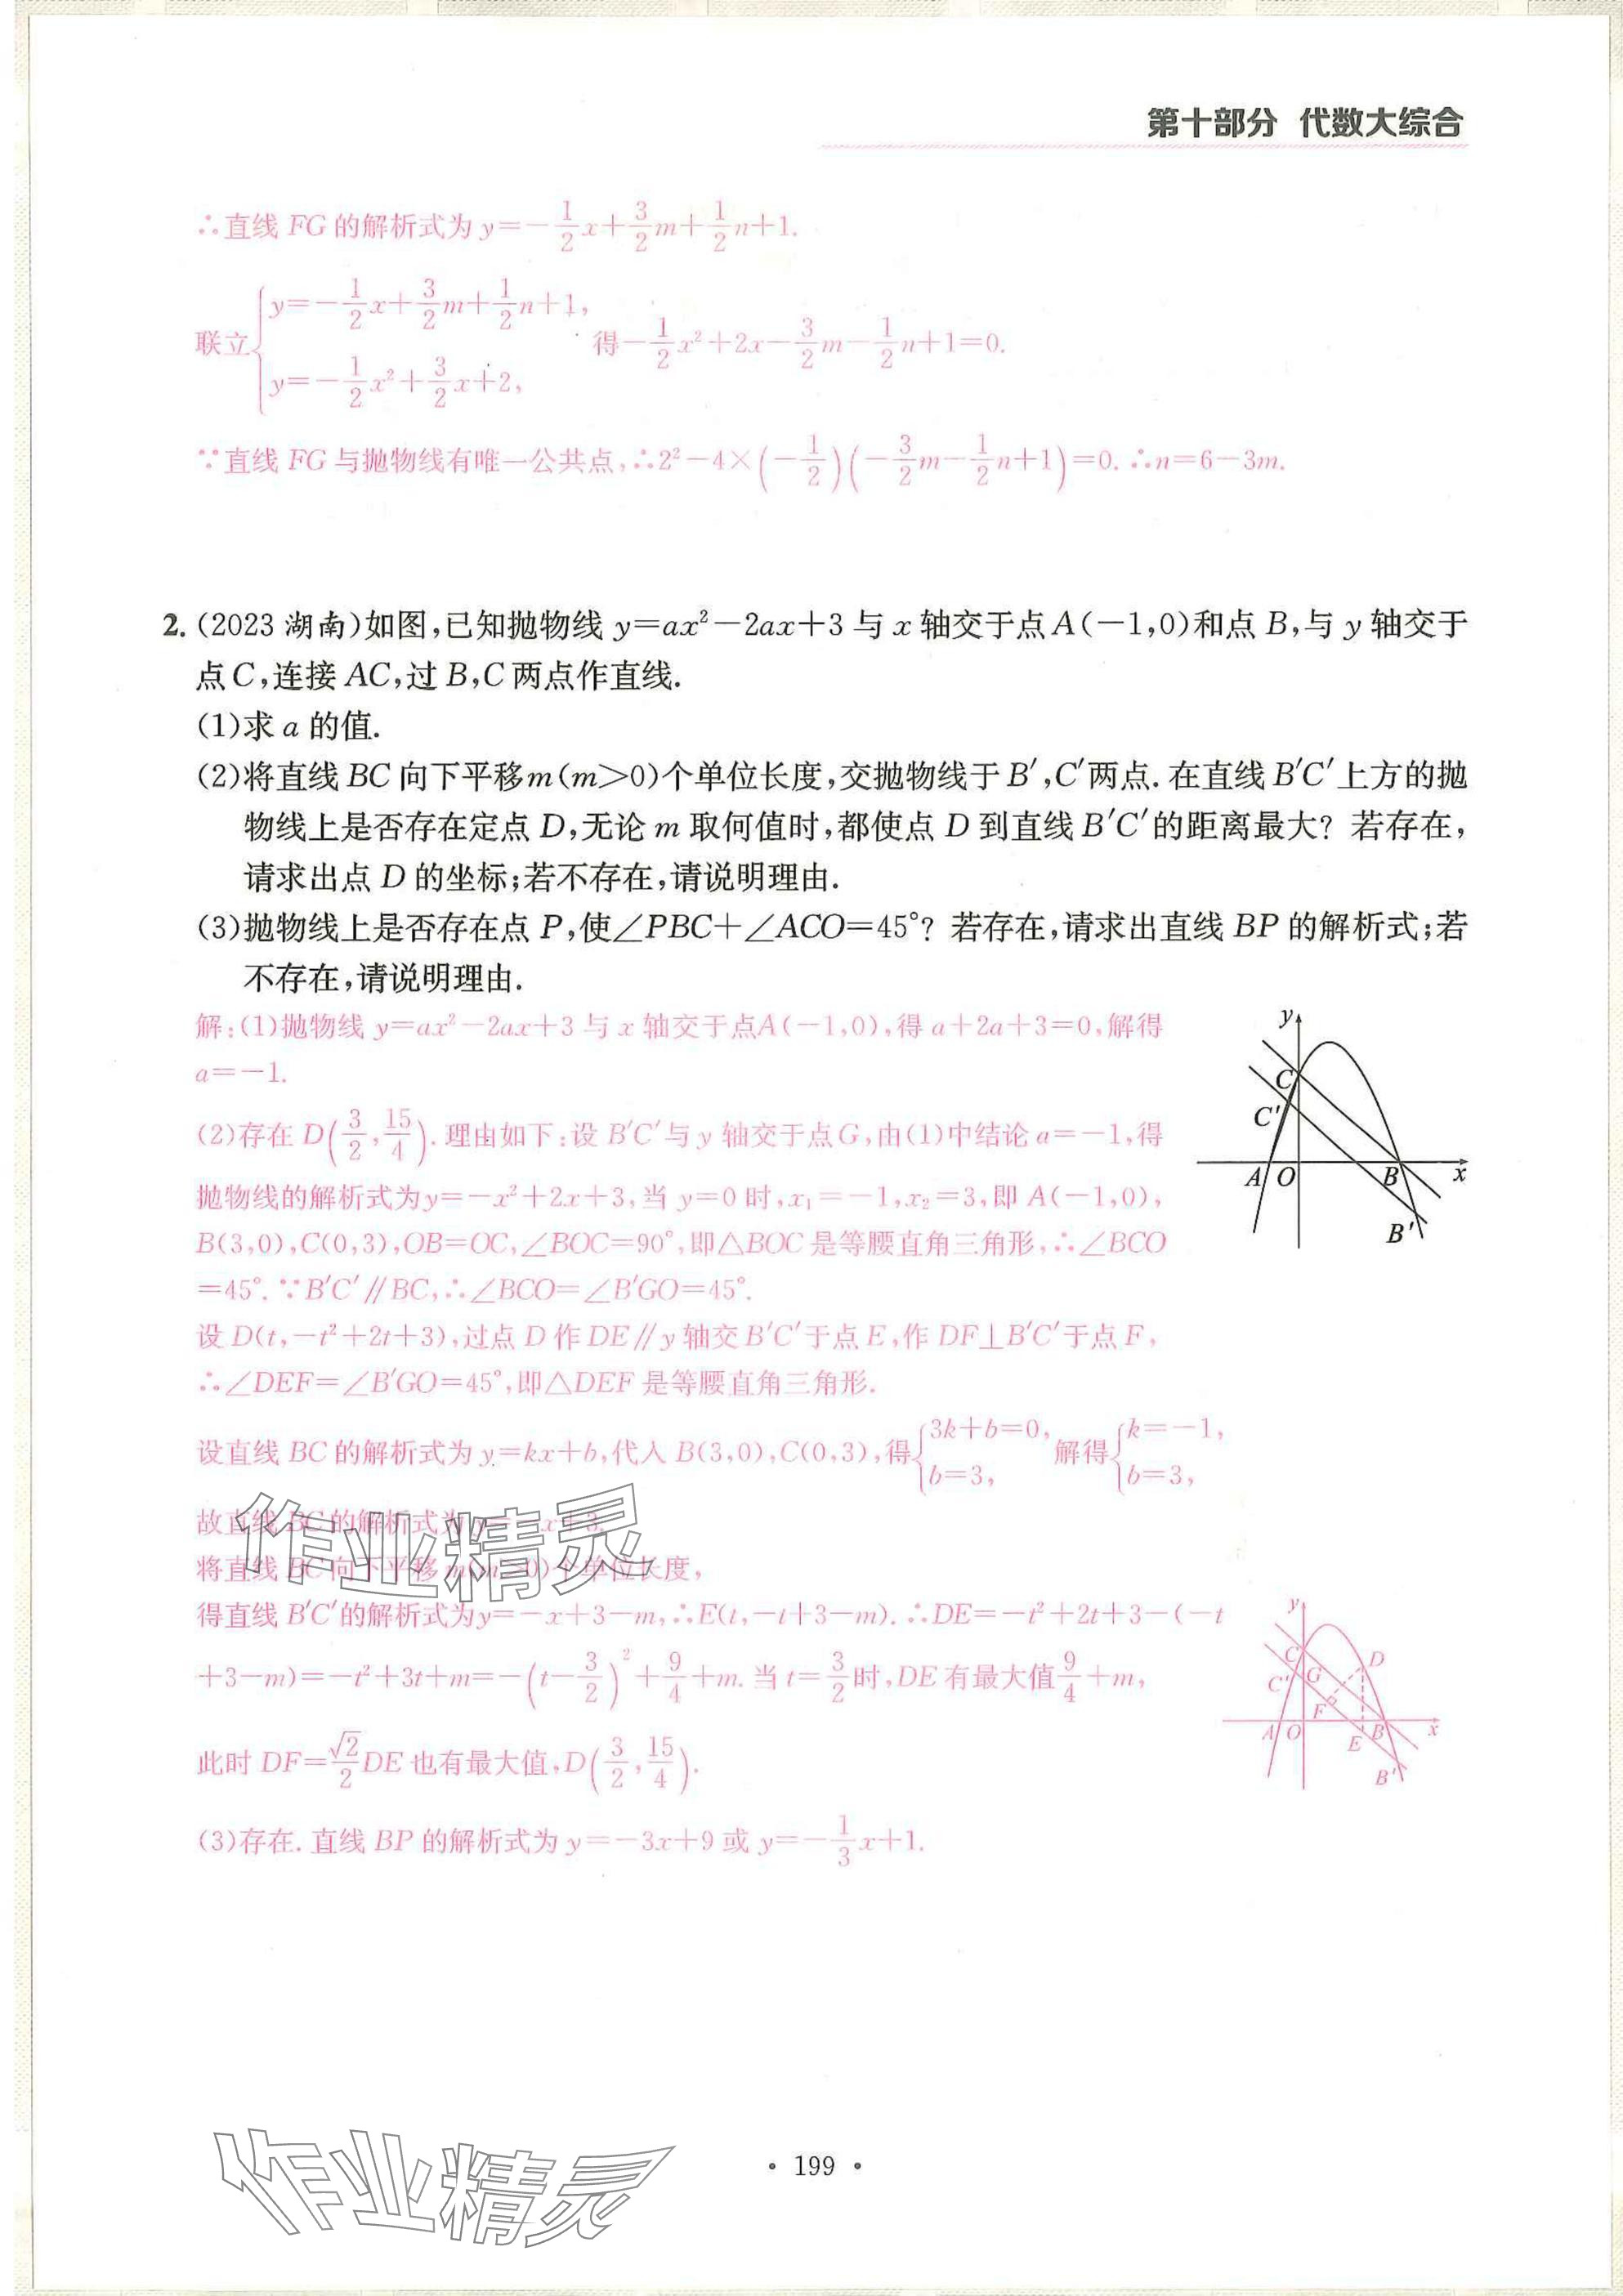 第十部分 代数大综合
∴直线 FG 的解析式为 y=-1/2x+3/2m+1/2n+1.
联立{y=-1/2x+3/2m+1/2n+1, y=-1/2x²+3/2x+2, 得-1/2x²+2x-3/2m-1/2n+1=0.
∵直线 FG 与抛物线有唯一公共点,∴2²-4×(-1/2)(-3/2m-1/2n+1)=0.∴n=6-3m.
2.(2023 湖南)如图,已知抛物线 y=ax²-2ax+3 与 x 轴交于点 A(-1,0)和点 B,与 y 轴交于
点 C,连接 AC,过 B,C 两点作直线.
(1)求 a 的值.
(2)将直线 BC 向下平移 m(m>0)个单位长度,交抛物线于 B′,C′两点.在直线 B′C′上方的抛
物线上是否存在定点 D,无论 m 取何值时,都使点 D 到直线 B′C′的距离最大? 若存在,
请求出点 D 的坐标;若不存在,请说明理由.
(3)抛物线上是否存在点 P,使∠PBC+∠ACO=45°? 若存在,请求出直线 BP 的解析式;若
不存在,请说明理由.
解:(1)抛物线 y=ax²-2ax+3 与 x 轴交于点A(-1,0),得 a+2a+3=0,解得
a=-1.
(2)存在 D(3/2,15/4).理由如下:设 B′C′与 y 轴交于点G,由(1)中结论 a=-1,得
抛物线的解析式为y=-x²+2x+3,当 y=0 时,x₁=-1,x₂=3,即 A(-1,0),
B(3,0),C(0,3),OB=OC,∠BOC=90°,即△BOC 是等腰直角三角形,∴∠BCO
=45°.∵B′C′∥BC,∴∠BCO=∠B′GO=45°.
设 D(t,-t²+2t+3),过点 D 作 DE∥y 轴交 B′C′于点 E,作 DF⊥B′C′于点 F,
∴∠DEF=∠B′GO=45°,即△DEF 是等腰直角三角形.
设直线 BC 的解析式为 y=kx+b,代入 B(3,0),C(0,3),得{3k+b=0, b=3, 解得{k=-1, b=3,
故直线 BC 的解析式为 y=-x+3.
将直线 BC 向下平移 m(m>0)个单位长度,
得直线 B′C′的解析式为y=-x+3-m,∴E(t,-t+3-m).∴DE=-t²+2t+3-(-t
+3-m)=-t²+3t+m=-(t-3/2)²+9/4+m.当 t=3/2时,DE 有最大值9/4+m,
此时 DF=√2/2DE 也有最大值,D(3/2,15/4).
(3)存在.直线 BP 的解析式为 y=-3x+9 或 y=-1/3x+1.
y
C
C′
A
O
B
x
B′
y
C
D
C′
G
F
A
O
E
B
x
B′
作业精灵
作业精灵
• 199 •